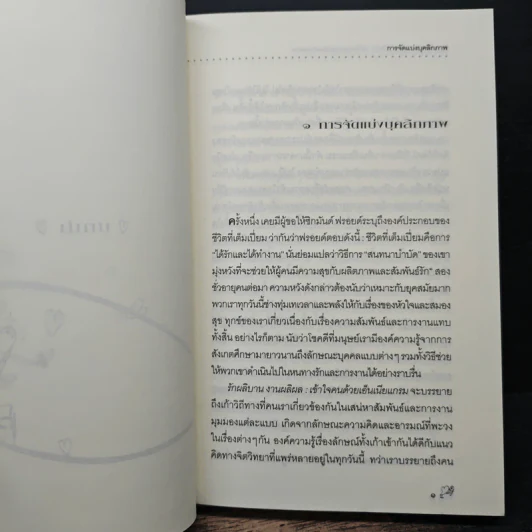 การจัดแบ่งบุคลิกภาพ
๑ การจัดแบ่งบุคลิกภาพ
ครั้งหนึ่ง เคยมีผู้ขอให้ซิกมันด์ ฟรอยด์ระบุถึงองค์ประกอบของ
ชีวิตที่เต็มเปี่ยม ว่ากันว่าฟรอยด์ตอบดังนี้ : ชีวิตที่เต็มเปี่ยมคือการ
"ได้รักและได้ทำงาน" นั่นย่อมแปลว่าวิธีการ "สนทนาบำบัด" ของเขา
มุ่งหวังที่จะช่วยให้ผู้คนมีความสุขกับผลิตภาพและสัมพันธ์รัก* สอง
ชั่วอายุคนต่อมา ความหวังดังกล่าวต้องนับว่าเหมาะกับยุคสมัยมาก
พวกเราทุกวันนี้ช่างทุ่มเทเวลาและพลังให้กับเรื่องของหัวใจและสมอง
สุข ทุกข์ของเราเกี่ยวเนื่องกับเรื่องความสัมพันธ์และการงานแทบ
ทั้งสิ้น อย่างไรก็ตาม นับว่าโชคดีที่มนุษย์เรามีองค์ความรู้จากการ
สังเกตศึกษามายาวนานถึงลักษณะบุคคลแบบต่างๆ รวมทั้งวิธีช่วย
ให้พวกเขาดำเนินไปในหนทางรักและการงานได้อย่างราบรื่น
รักผลิบาน งานผลิผล : เข้าใจคนด้วยเอ็นเนียแกรม จะบรรยาย
ถึงเก้าวิถีทางที่คนเราเกี่ยวข้องกันในเสน่หาสัมพันธ์และการงาน
มุมมองแต่ละแบบ เกิดจากลักษณะความคิดและอารมณ์ที่พะวง
ในเรื่องต่างๆ กัน องค์ความรู้เรื่องลักษณ์ทั้งเก้าเข้ากันได้ดีกับแนว
คิดทางจิตวิทยาที่แพร่หลายอยู่ในทุกวันนี้ ทว่าเราบรรยายถึงคน